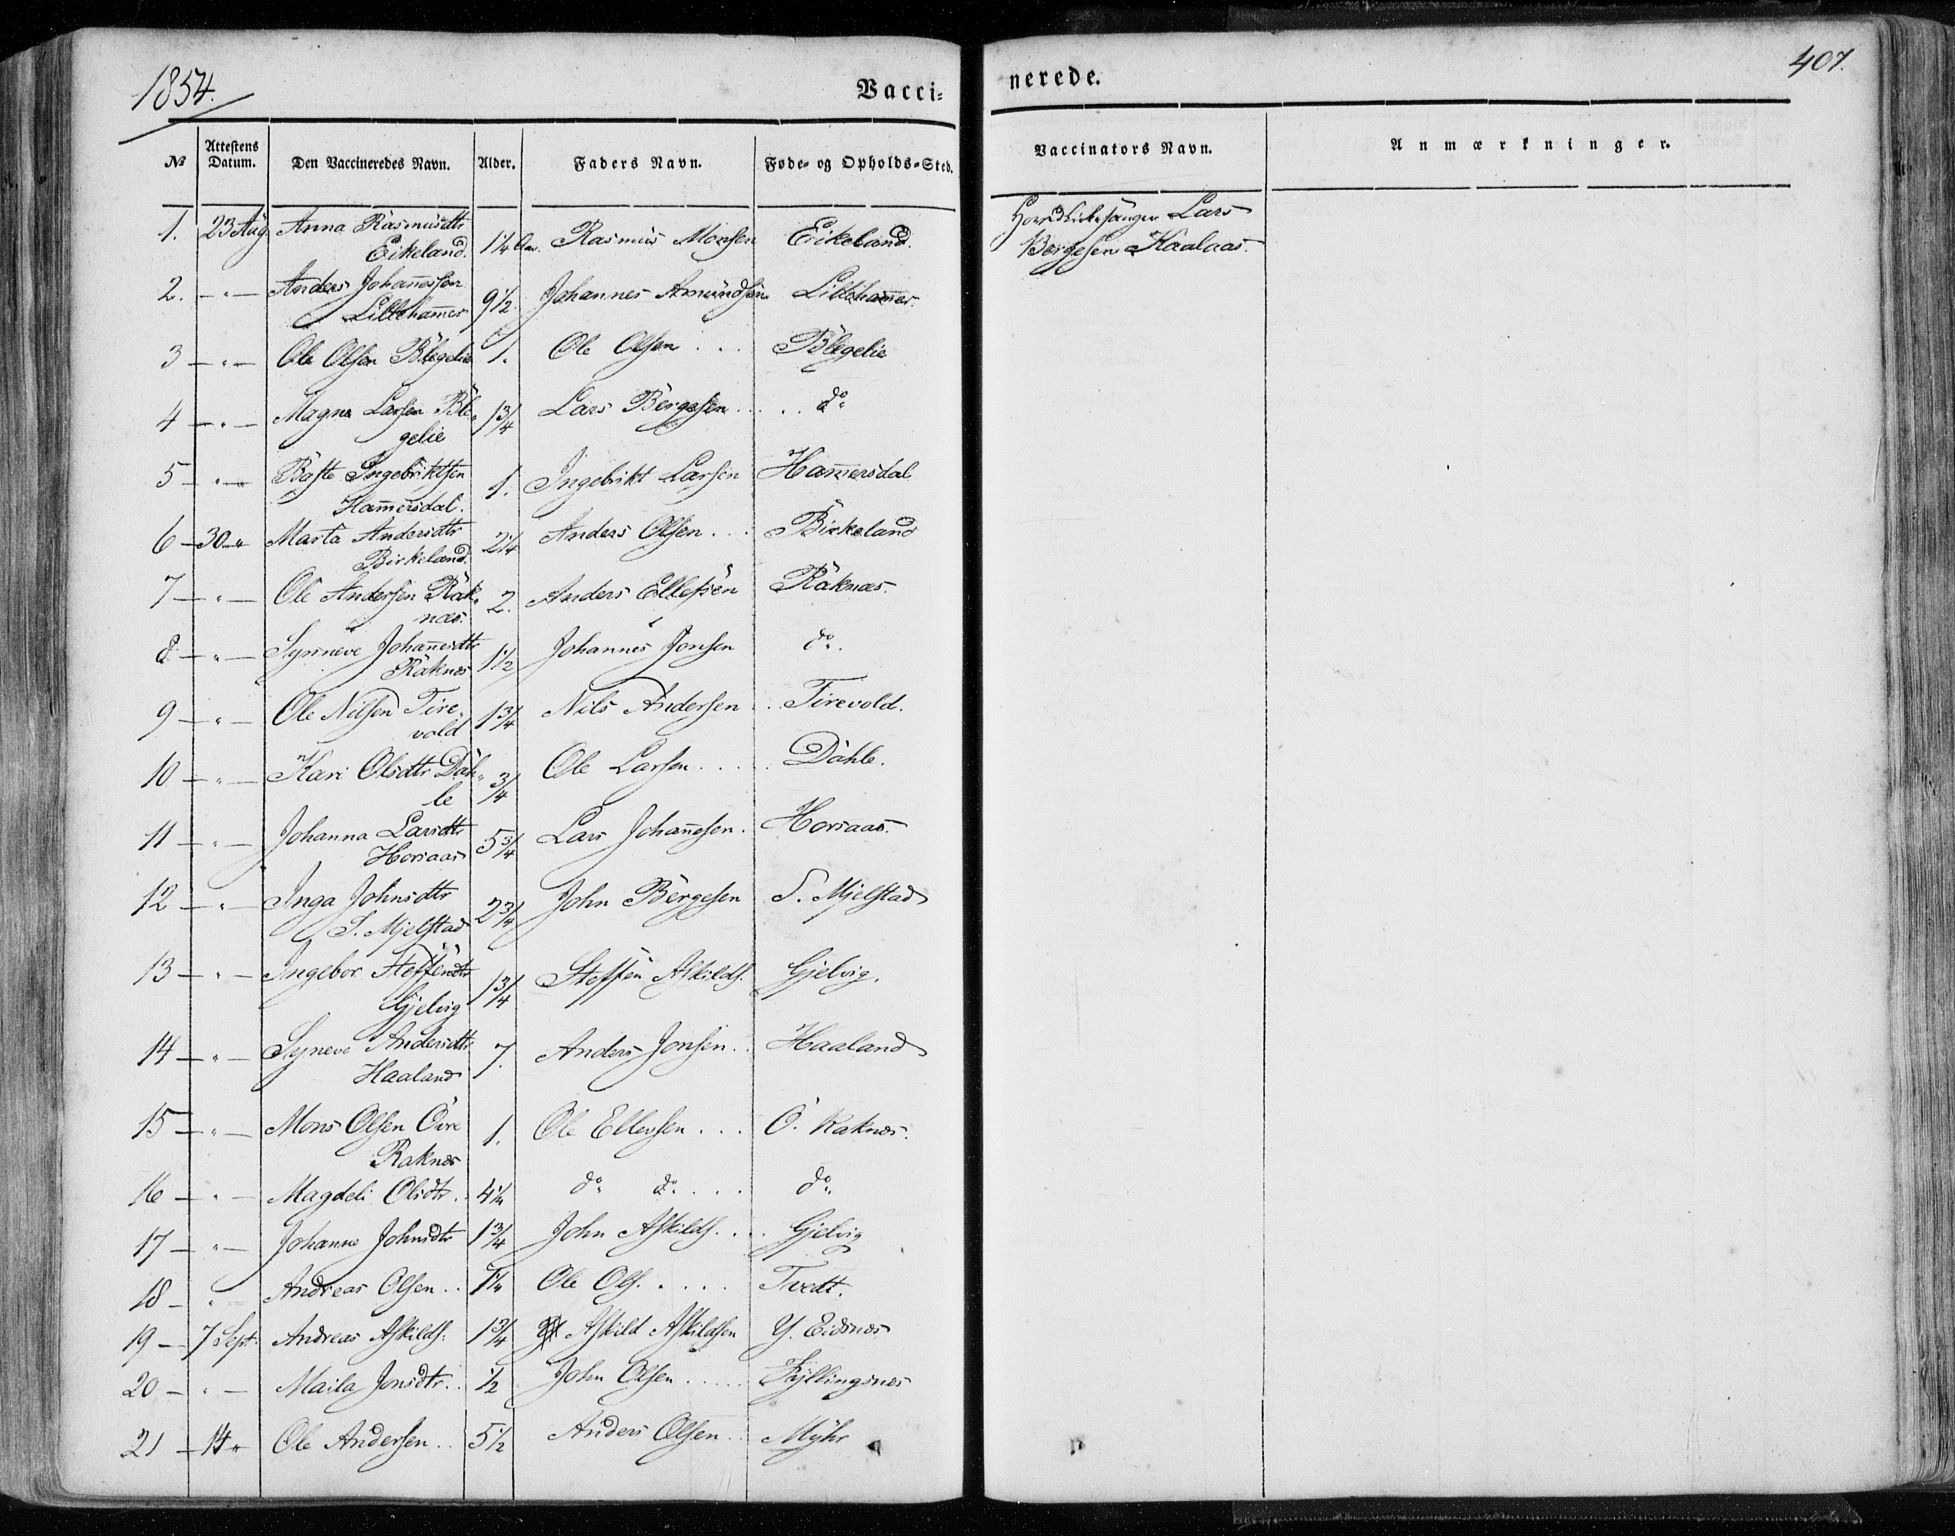 1854.
Vacci-
nerede.
407.
№ Attestens Datum. Den Vaccineredes Navn. Alder. Faders Navn. Føde- og Opholds-Sted. Vaccinators Navn. Anmærkninger.
1. 23 Aug Anna Rasmusdtr 1¼ Rasmus Monsen Eikeland. Lars
Eikeland. Børgesen Kaalaas.
2. — " — Anders Johannesson 9½ Johannes Amundsen Littlehamer.
Littlehamer
3 — " — Ole Olsen Blegelie 1. Ole Olsen . . . Blegelie
4 — " — Magne Larsen Ble- 1¾ Lars Børgesen . . . . do
gelie
5 — " — Baste Ingebriktsen 1. Ingebrikt Larsen Hamersdal
Hamersdal.
6 — 30 — " Marta Andersdtr 2¼ Anders Olsen . . . Birkeland
Birkeland.
7 — " — Ole Andersen Rak- 2. Anders Ellefsen Raknæs.
næs.
8 — " — Synneve Johanesdtr 1½ Johannes Jonsen do.
Raknes
9 — " — Ole Nilsen Tire- 1¾ Nils Andersen . Tirevold.
vold
10 — " — Kari Olsdtr Dah- ¾ Ole Larsen . . . . Dahle.
le
11 — " — Johanna Larsdtr 5¾ Lars Johanesen. Horsaas.
Horsaas
12 — " — Inga Johnsdtr 2¾ John Børgesen S. Mjelstad
S. Mjelstad
13 — " — Ingebor Steffensdtr 1¾ Steffen Askilds. Gjelvig.
Gjelvig
14 — " — Syneve Andersdtr 7. Anders Jonsen . . Haaland
Haaland
15 — " — Mons Olsen Övre 1. Ole Ellevsen . . . Ö. Raknes.
Raknes
16 — " — Magdeli Olsdtr. 4¼ do do . . . . do
17 — " — Johanne Johnsdtr 1¾ John Askilds. . . . Gjelvig
18 — " — Andreas Olsen . . 1¼ Ole Ols. . . . . Tvedt.
19 — 7 Sept. Andreas Askilds. 1¾ Askild Askildsen Y. Eidsnes
20 — " — Maila Jonsdtr. . ½ John Olsen . . . . . Kyllingsnes
21 — 14 " Ole Andersen . . 5½ Anders Olsen . . Myhr